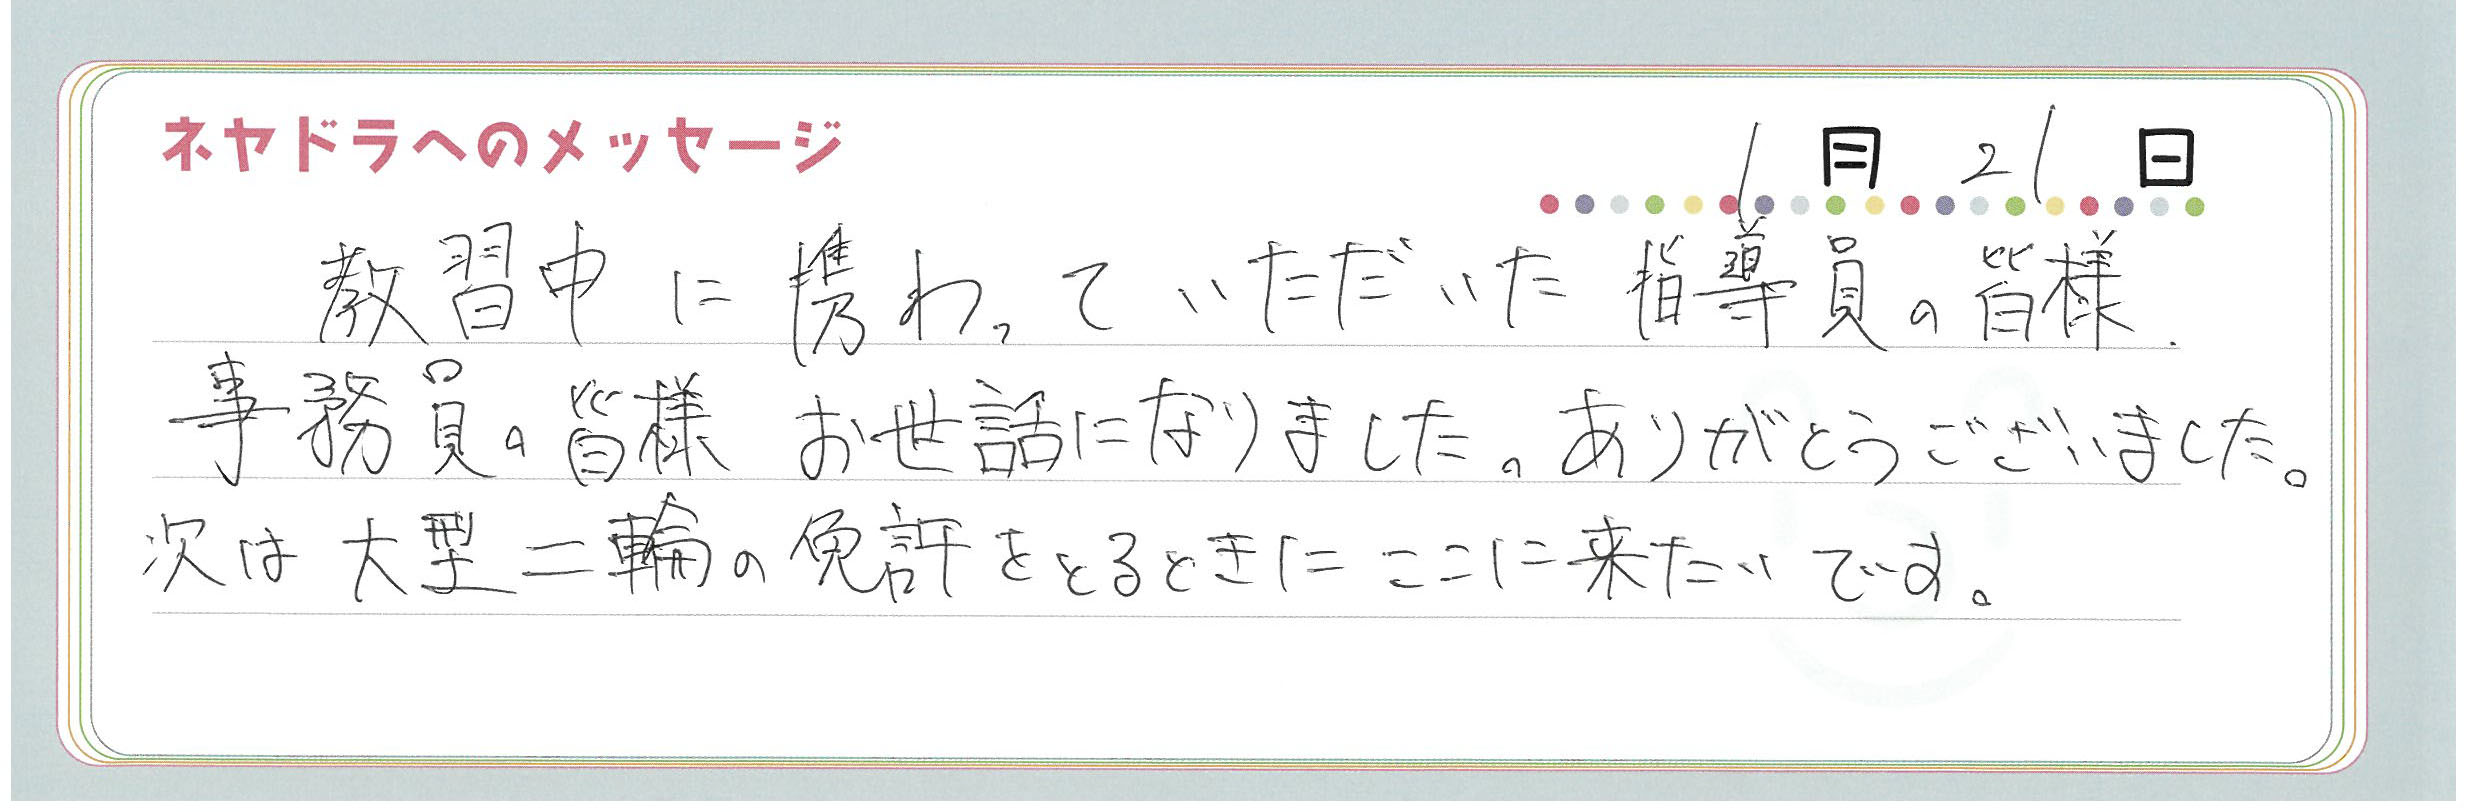 ネヤドラへのメッセージ
1月21日
教習中に携わっていただいた指導員の皆様.
事務員の皆様 お世話になりました。ありがとうございました。
次は大型二輪の免許をとるときにここに来たいです。